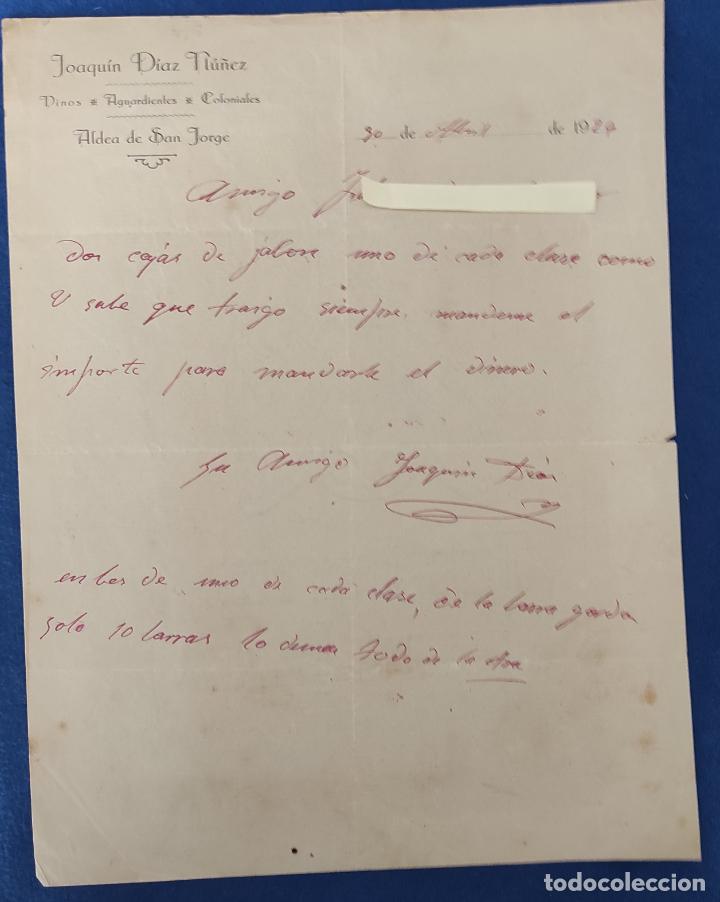 Joaquín Díaz Núñez
Vinos * Aguardientes * Coloniales
Aldea de San Jorge
30 de Abril de 192
Amigo
dos cajas de jabon uno de cada clase como
V sabe que traigo siempre. mandeme el
importe para mandarle el dinero.
Su Amigo Joaquin Diaz
en bes de uno de cada clase, de la barra gorda
solo 10 barras lo demas todo de la otra
todocoleccion.net